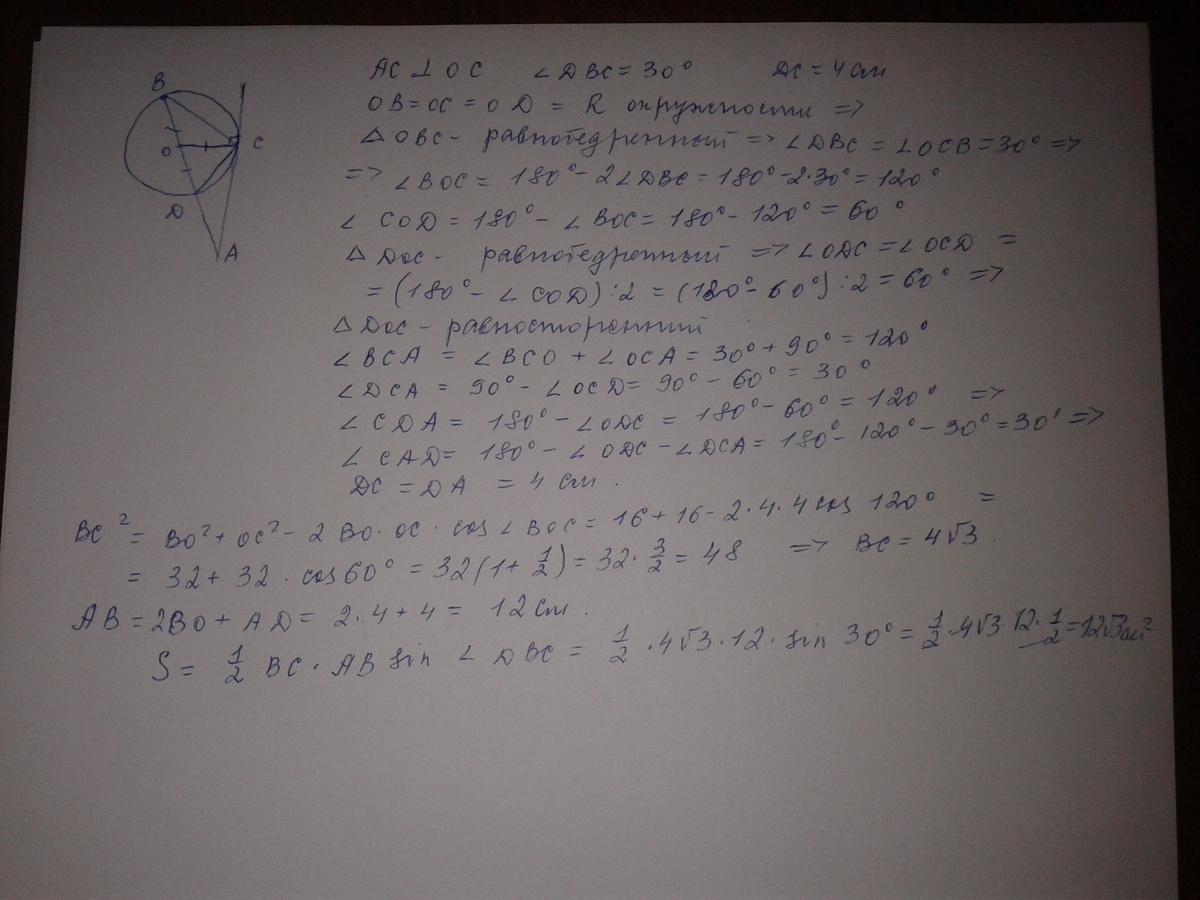 B
O
C
D
A
AC ⊥ OC ∠DBC = 30° DC = 4 см
OB = OC = OD = R окружности =>
△OBC - равнобедренный => ∠DBC = ∠OCB = 30° =>
=> ∠BOC = 180° - 2∠DBC = 180° - 2·30° = 120°
∠COD = 180° - ∠BOC = 180° - 120° = 60°
△DOC - равнобедренный => ∠ODC = ∠OCD =
= (180° - ∠COD) : 2 = (180° - 60°) : 2 = 60° =>
△DOC - равносторонний
∠BCA = ∠BCO + ∠OCA = 30° + 90° = 120°
∠DCA = 90° - ∠OCD = 90° - 60° = 30°
∠CDA = 180° - ∠ODC = 180° - 60° = 120° =>
∠CAD = 180° - ∠ODC - ∠DCA = 180° - 120° - 30° = 30° =>
DC = DA = 4 см.
BC² = BO² + OC² - 2BO·OC·cos∠BOC = 16 + 16 - 2·4·4 cos 120° =
= 32 + 32 · cos 60° = 32(1 + 1/2) = 32 · 3/2 = 48 => BC = 4√3.
AB = 2BO + AD = 2·4 + 4 = 12 см.
S = 1/2 BC · AB sin ∠DBC = 1/2 · 4√3 · 12 · sin 30° = 1/2 · 4√3 · 12 · 1/2 = 12√3 см²